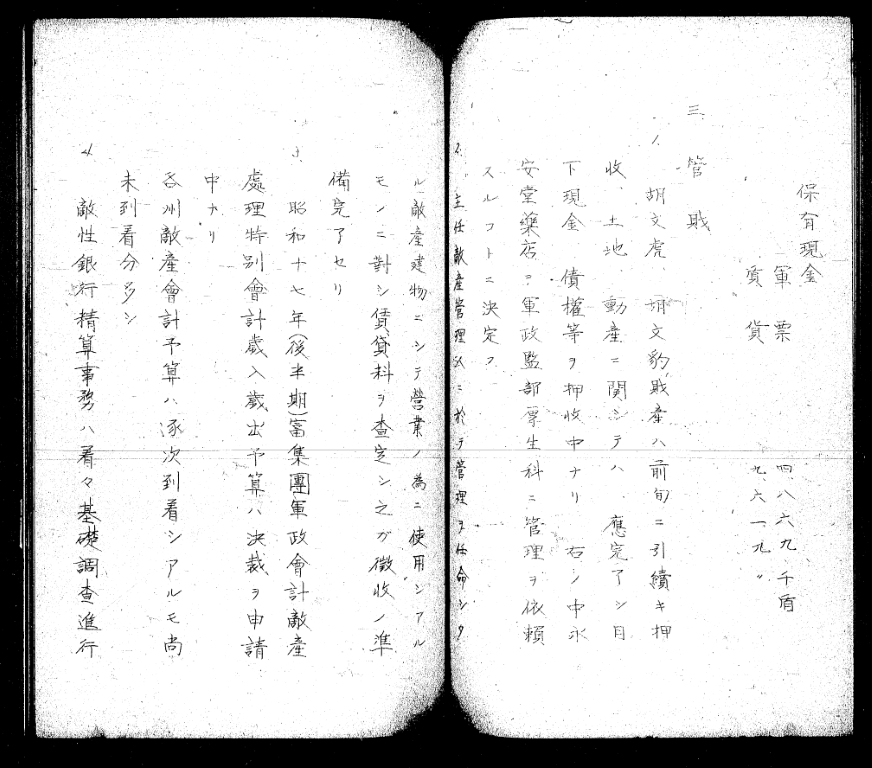 保有現金
軍票　四八六九千盾
貨貨　九六一九〃
三　管財
1、胡文虎、胡文豹財産ハ前旬ニ引續キ押
收、土地、動産ニ関シテハ一應完了シ目
下現金、債權等ヲ押收中ナリ　右ノ中永
安堂藥店ハ軍政監部厚生科ニ管理ヲ依頼
スルコトニ決定ス
2、主任敵産管理人ニ於テ管理ヲ任命シタ
ル敵産建物ニシテ營業ノ為ニ使用シアル
モノニ對シ賃貸料ヲ査定シ之ガ徴收ノ準
備完了セリ
3、昭和十七年(後半期)富集團軍政會計敵産
處理特別會計歳入歳出予算ハ決裁ヲ申請
中ナリ
各州敵産會計予算ハ逐次到着シアルモ尚
未到着分多シ
4、敵性銀行精算事務ハ着々基礎調査進行